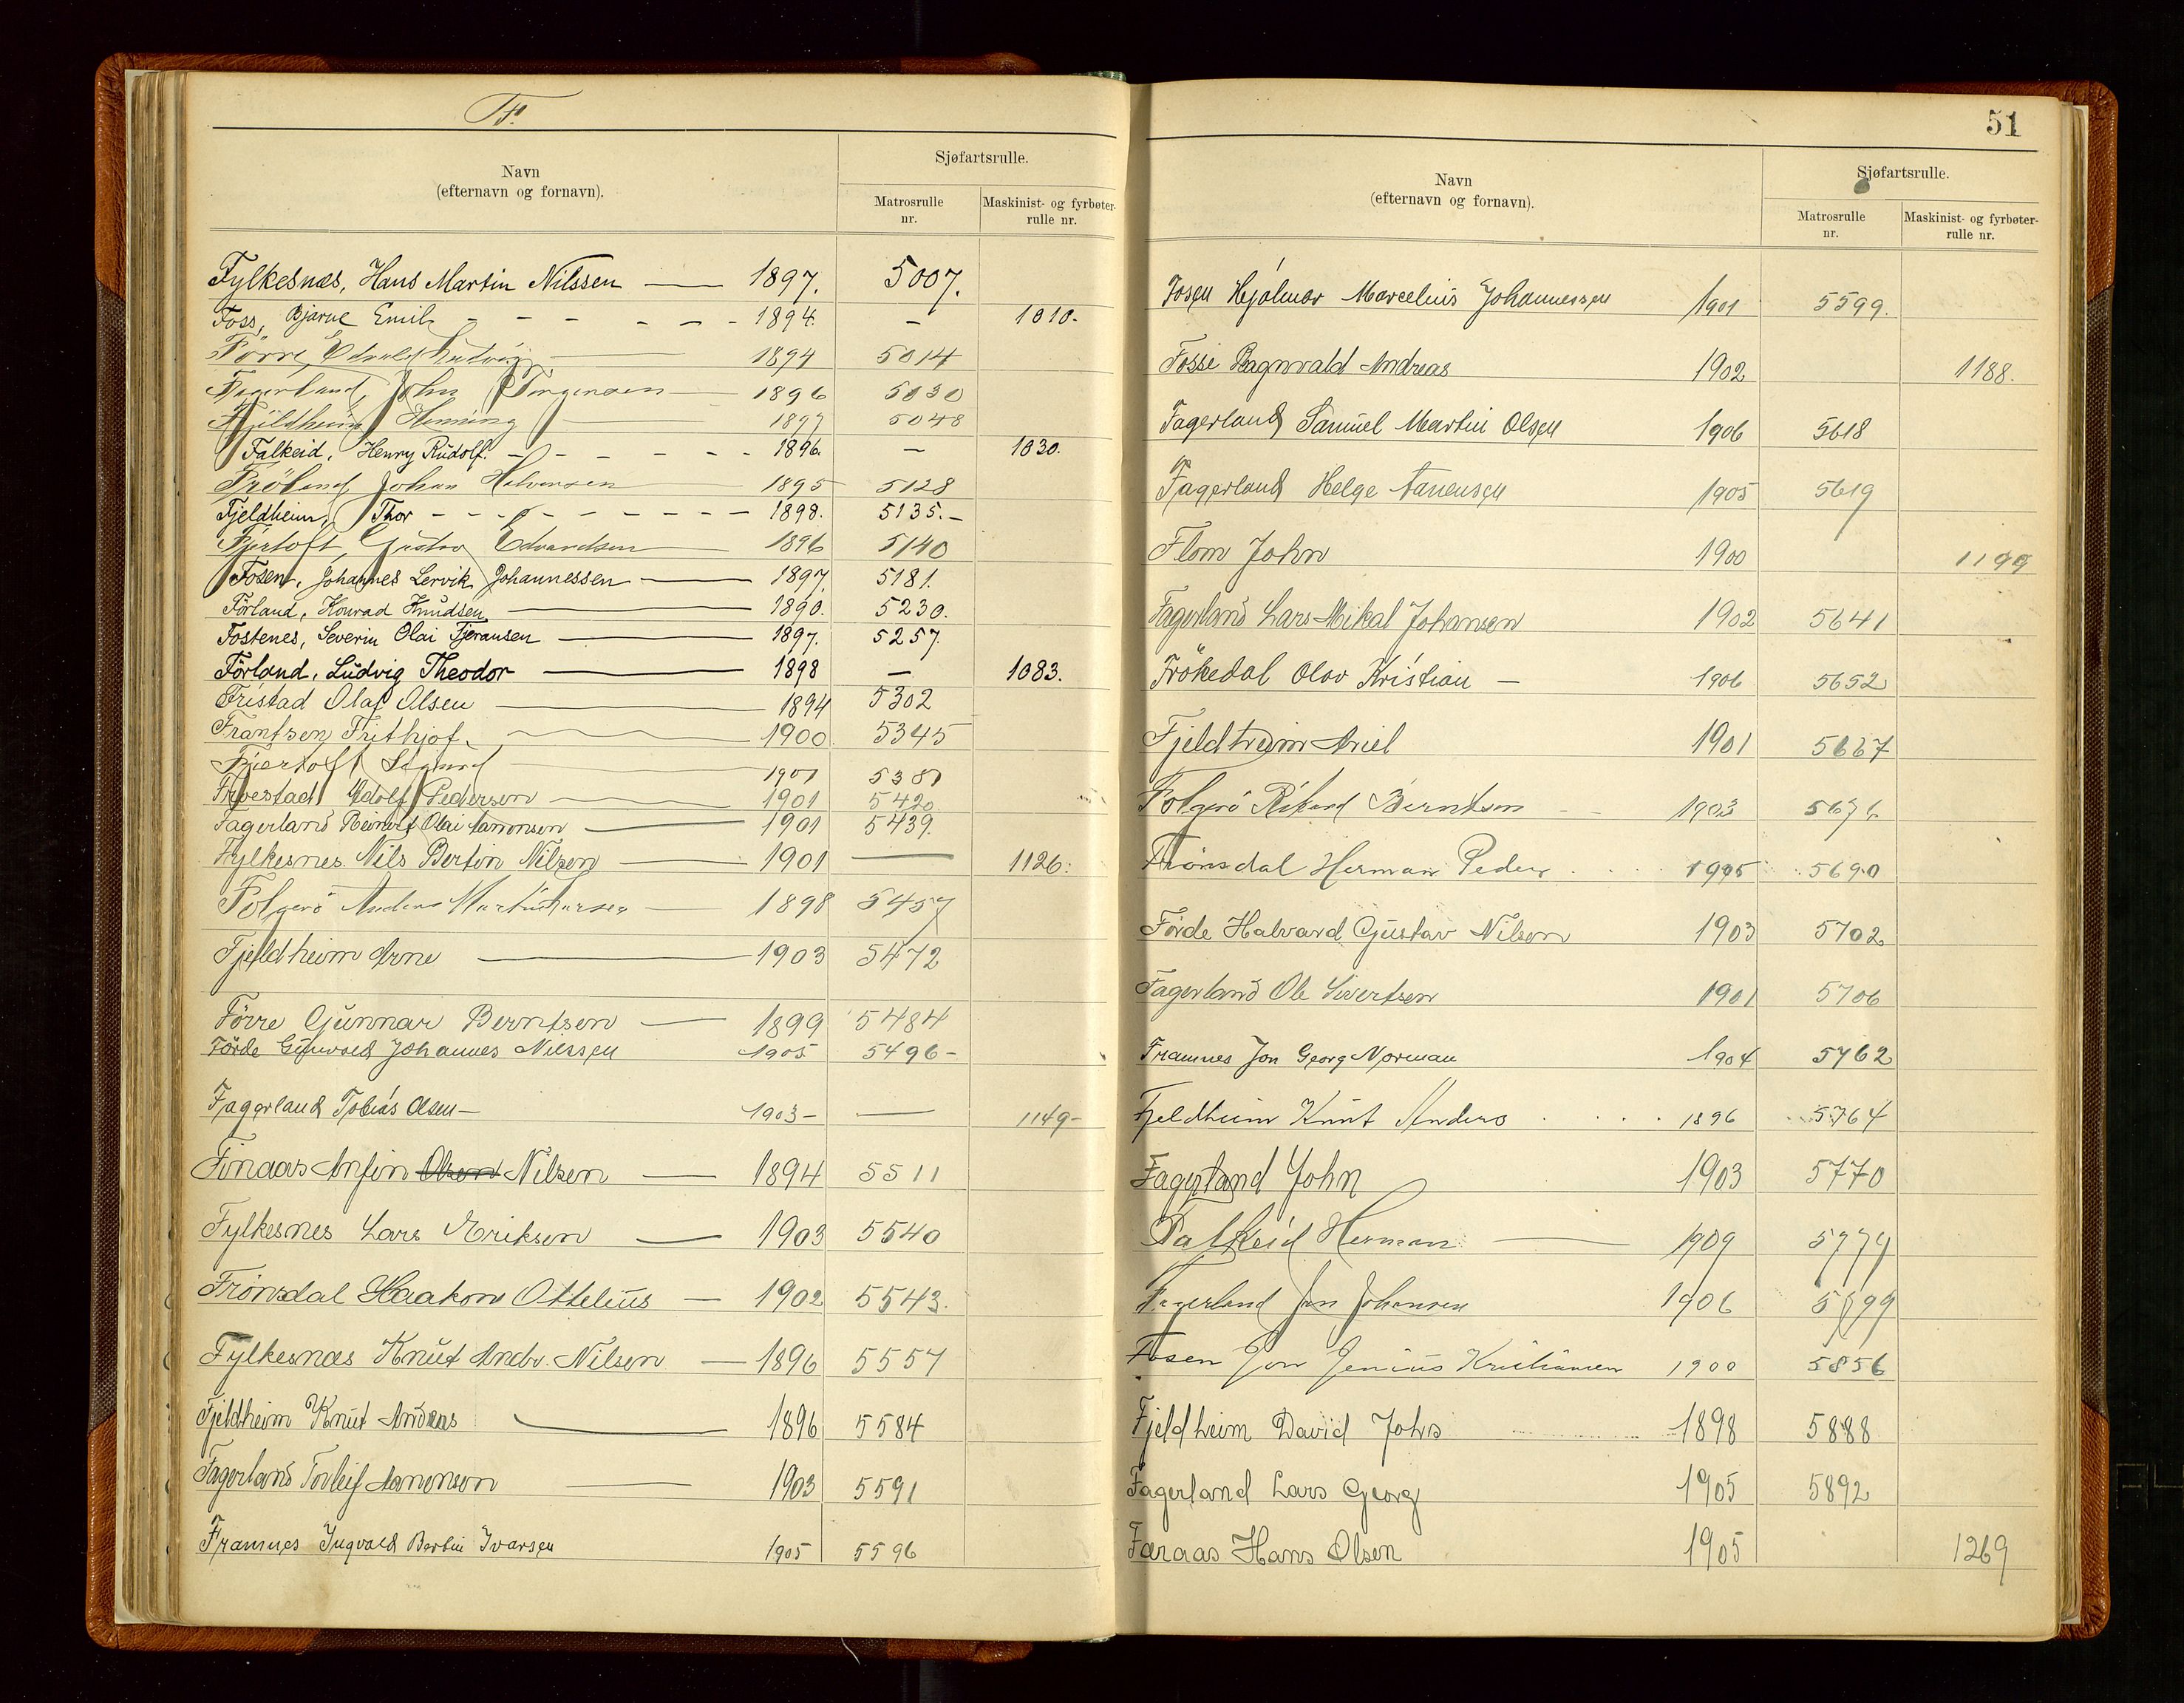 F.
Navn
(efternavn og fornavn).
Sjøfartsrulle.
Matrosrulle
nr.
Maskinist- og fyrbøter-
rulle nr.
Fylkesnæs, Hans Martin Nilssen — 1897. 5007.
Foss, Bjarne Emil - - - - - - 1894. — 1010.
Förre, Edvald Ludvig — 1894 5014
Fagerland, John Torgersen — 1896 5030
Fjeldheim Henning — 1897 5048
Falkeid, Henry Rudolf. - - - - - - 1896. — 1030.
Fröland, Johan Halvorsen — 1895 5128
Fjeldheim, Thor - - - - - - - - - 1898. 5135.-
Fjertoft, Gustav Edvardsen — 1896 5140
Fosen, Johannes Lervik Johannessen — 1897. 5181.
Förland, Konrad Knudsen — 1890. 5230.
Fostenes, Severin Olai Tjeransen — 1897. 5257.
Förland, Ludvig Theodor — 1898 — 1083.
Fristad Olaf Olsen — 1894 5302
Frantsen Frithjof. — 1900. 5345
Fjertoft Sigurd — 1901 5381
Adolf Pedersen — 1901 5420
Fagerland Reinert Olai Aanonsen — 1901 5439.
Fylkesnes Nils Bertin Nilsen — 1901 — 1126.
Folgerö Anders Martin — 1898 5457
Fjeldheim Arne — 1903 5472
Förre Gunnar Berntsen — 1899 5484
Förde Johannes Nilssen 1905 5496-
Fagerland Tobias Olsen — 1903- — 1149-
Finaas Anfin Olsen Nilsen — 1894 5511
Fylkesnes Lars Eriksen — 1903 5540
Frönsdal Haakon Ottelius — 1902 5543.
Fylkesnæs Knut Andr. Nilsen — 1896 5557
Fjeldheim Knut Andreas — 1896 5584
Fagerland Torleif Aanonsen — 1903 5591
Framnes Ingvald Bertin Ivarsen 1905 5596
51
Navn
(efternavn og fornavn).
Sjøfartsrulle.
Matrosrulle
nr.
Maskinist- og fyrbøter-
rulle nr.
Fosen Hjalmar Marcelius Johannessen 1901 5599.
Fosse Ragnvald Andreas 1902 1188.
Fagerland Samuel Martin Olsen 1906 5618
Fagerland Helge Aanensen 1905 5619
Flom John 1900 1199
Fagerland Lars Mikal Johansen 1902 5641
Frökedal Olav Kristian — 1906 5652
Fjeldheim Ariel 1901 5667
Folgerö Rikard Berntsen - - 1903 5676
Frönsdal Herman Peder . . . . 1905 5690
Förde Halvard Gustav Nilsen 1903 5702
Fagerland Ole Sivertsen 1901 5706
Framnes Jon Georg Norman 1904 5762
Fjeldheim Knut Anders . . . . 1896 5764
Fagerland John 1903 5770
Falkeid Herman — 1909 5779
Fagerland Jan Johansen 1906 5799
Fosen Jon Jenius Kristiansen 1900 5856
Fjeldheim David Johs 1898 5888
Fagerland Lars Georg 1905 5892
Færaas Hans Olsen 1905 1269